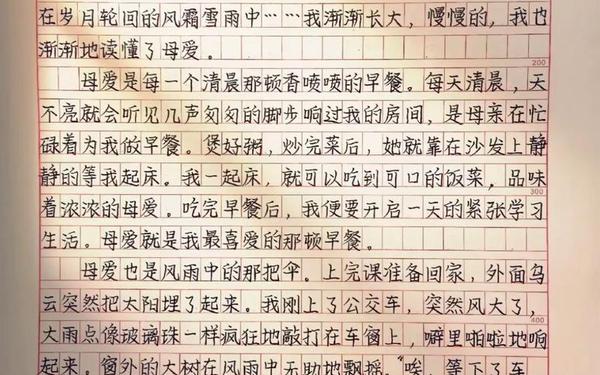 在岁月轮回的风霜雪雨中……我渐渐长大，慢慢的，我也
渐渐地读懂了母爱。
200
母爱是每一个清晨那顿香喷喷的早餐。每天清晨，天
不亮就会听见几声匆匆的脚步响过我的房间，是母亲在忙
碌着为我做早餐。煲好粥，炒完菜后，她就靠在沙发上静
静的等我起床。我一起床，就可以吃到可口的饭菜，品味
300
着浓浓的母爱。吃完早餐后，我便要开启一天的紧张学习
生活。母爱就是我最喜爱的那顿早餐。
母爱也是风雨中的那把伞。上完课准备回家，外面乌
云突然把太阳埋了起来。我刚上了公交车，突然风大了，
400
大雨点像玻璃珠一样疯狂地敲打在车窗上，噼里啪啦地响
起来。窗外的大树在风雨中无助地飘摇。“唉，等下了车